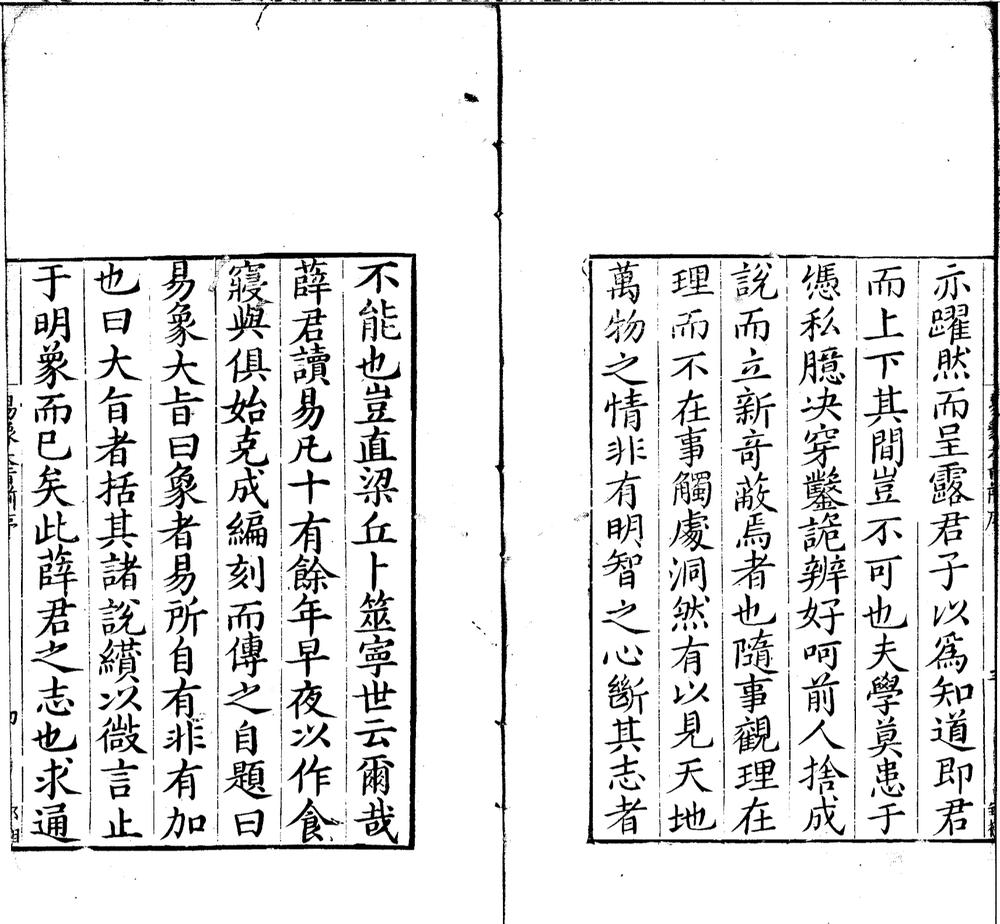 亦躍然而呈露君子以為知道即君
而上下其間豈不可也夫學莫患于
憑私臆决穿鑿詭辨好呵前人捨成
說而立新奇蔽焉者也隨事觀理在
理而不在事觸處洞然有以見天地
萬物之情非有明智之心斷其志者
不能也豈直梁丘卜筮寧世云爾哉
薛君讀易凡十有餘年早夜以作食
寢與俱始克成編刻而傳之自題曰
易象大旨曰象者易所自有非有加
也曰大旨者括其諸說纉以微言止
于明象而已矣此薛君之志也求通